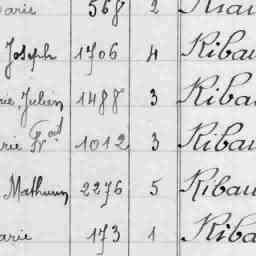 arie 568 2
Joseph 1706 4 Ribau
rie Julien 1488 3 Riba
rie Fois 1012 3 Ribau
Mathurin 2276 5 Ribau
arie 173 1 Riba